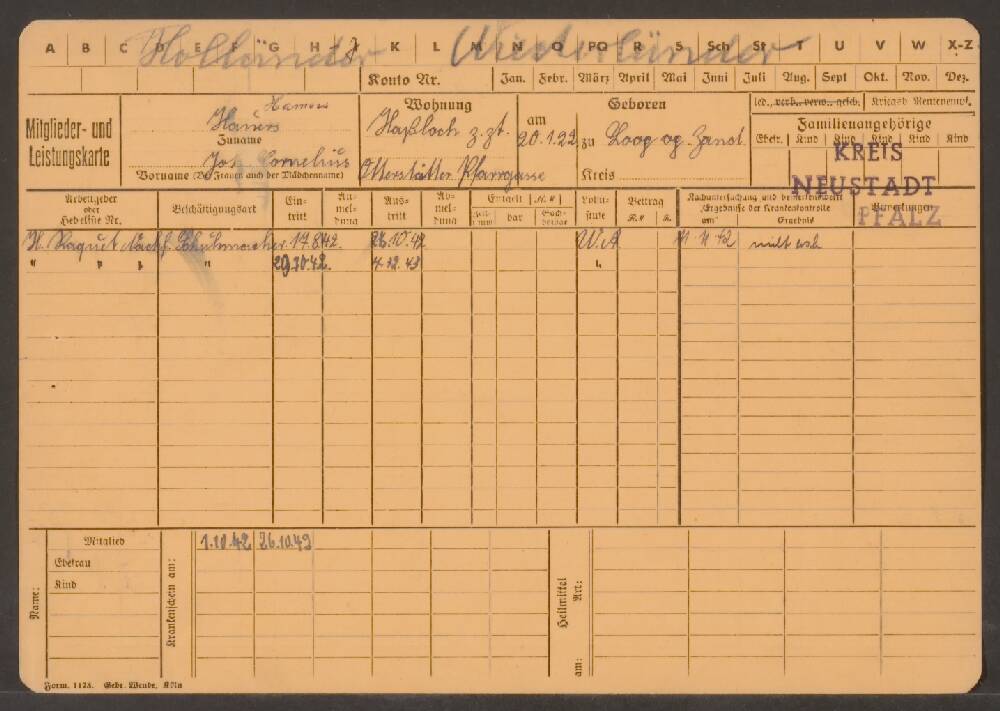 A B C D E F G H J K L M N O PQ R S Sch St T U V W X-Z
Holländer Niederländer
Konto Nr. Jan. Febr. März April Mai Juni Juli Aug. Sept Okt. Nov. Dez.
Mitglieder- und Leistungskarte
Hamers
Hauers
Zuname
Joh. Cornelius
Vorname (Bei Frauen auch der Mädchenname)
Wohnung
Haßloch z. zt.
Pfarrgasse
Geboren
am 20.1.22 zu Loog og Zanst
Kreis
led., verh., verw., gesch. Kriegsb. Rentenempf.
Familienangehörige
Ehefr. Kind Kind Kind Kind Kind
KREIS
NEUSTADT
PFALZ
Arbeitgeber oder Hebeliste Nr. Beschäftigungsart Ein-tritt An-mel-dung Aus-tritt Ab-mel-dung Entgelt bar Lohn-stufe Beitrag Bemerkungen
H. Raquet Nachf. Schuhmacher 17.8.42. 26.10.42 W.A 11.11.42
" " " " 29.10.42. 4.12.43 "
Name: Mitglied Krankenschein am: 1.10.42 26.10.43 Heilmittel Art: am:
Ehefrau
Kind
Form. 1128. Gebr. Wende, Köln